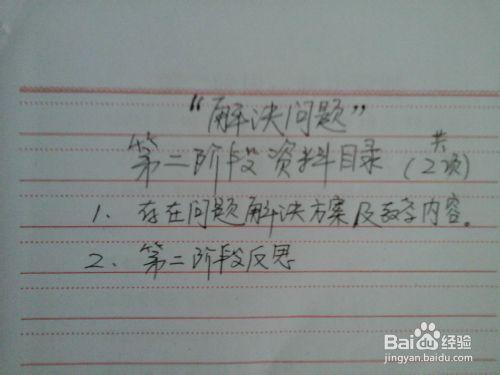 “解决问题”
第二阶段资料目录（共2项）
1、存在问题解决方案及教学内容。
2、第二阶段反思
Baidu经验
jingyan.baidu.com